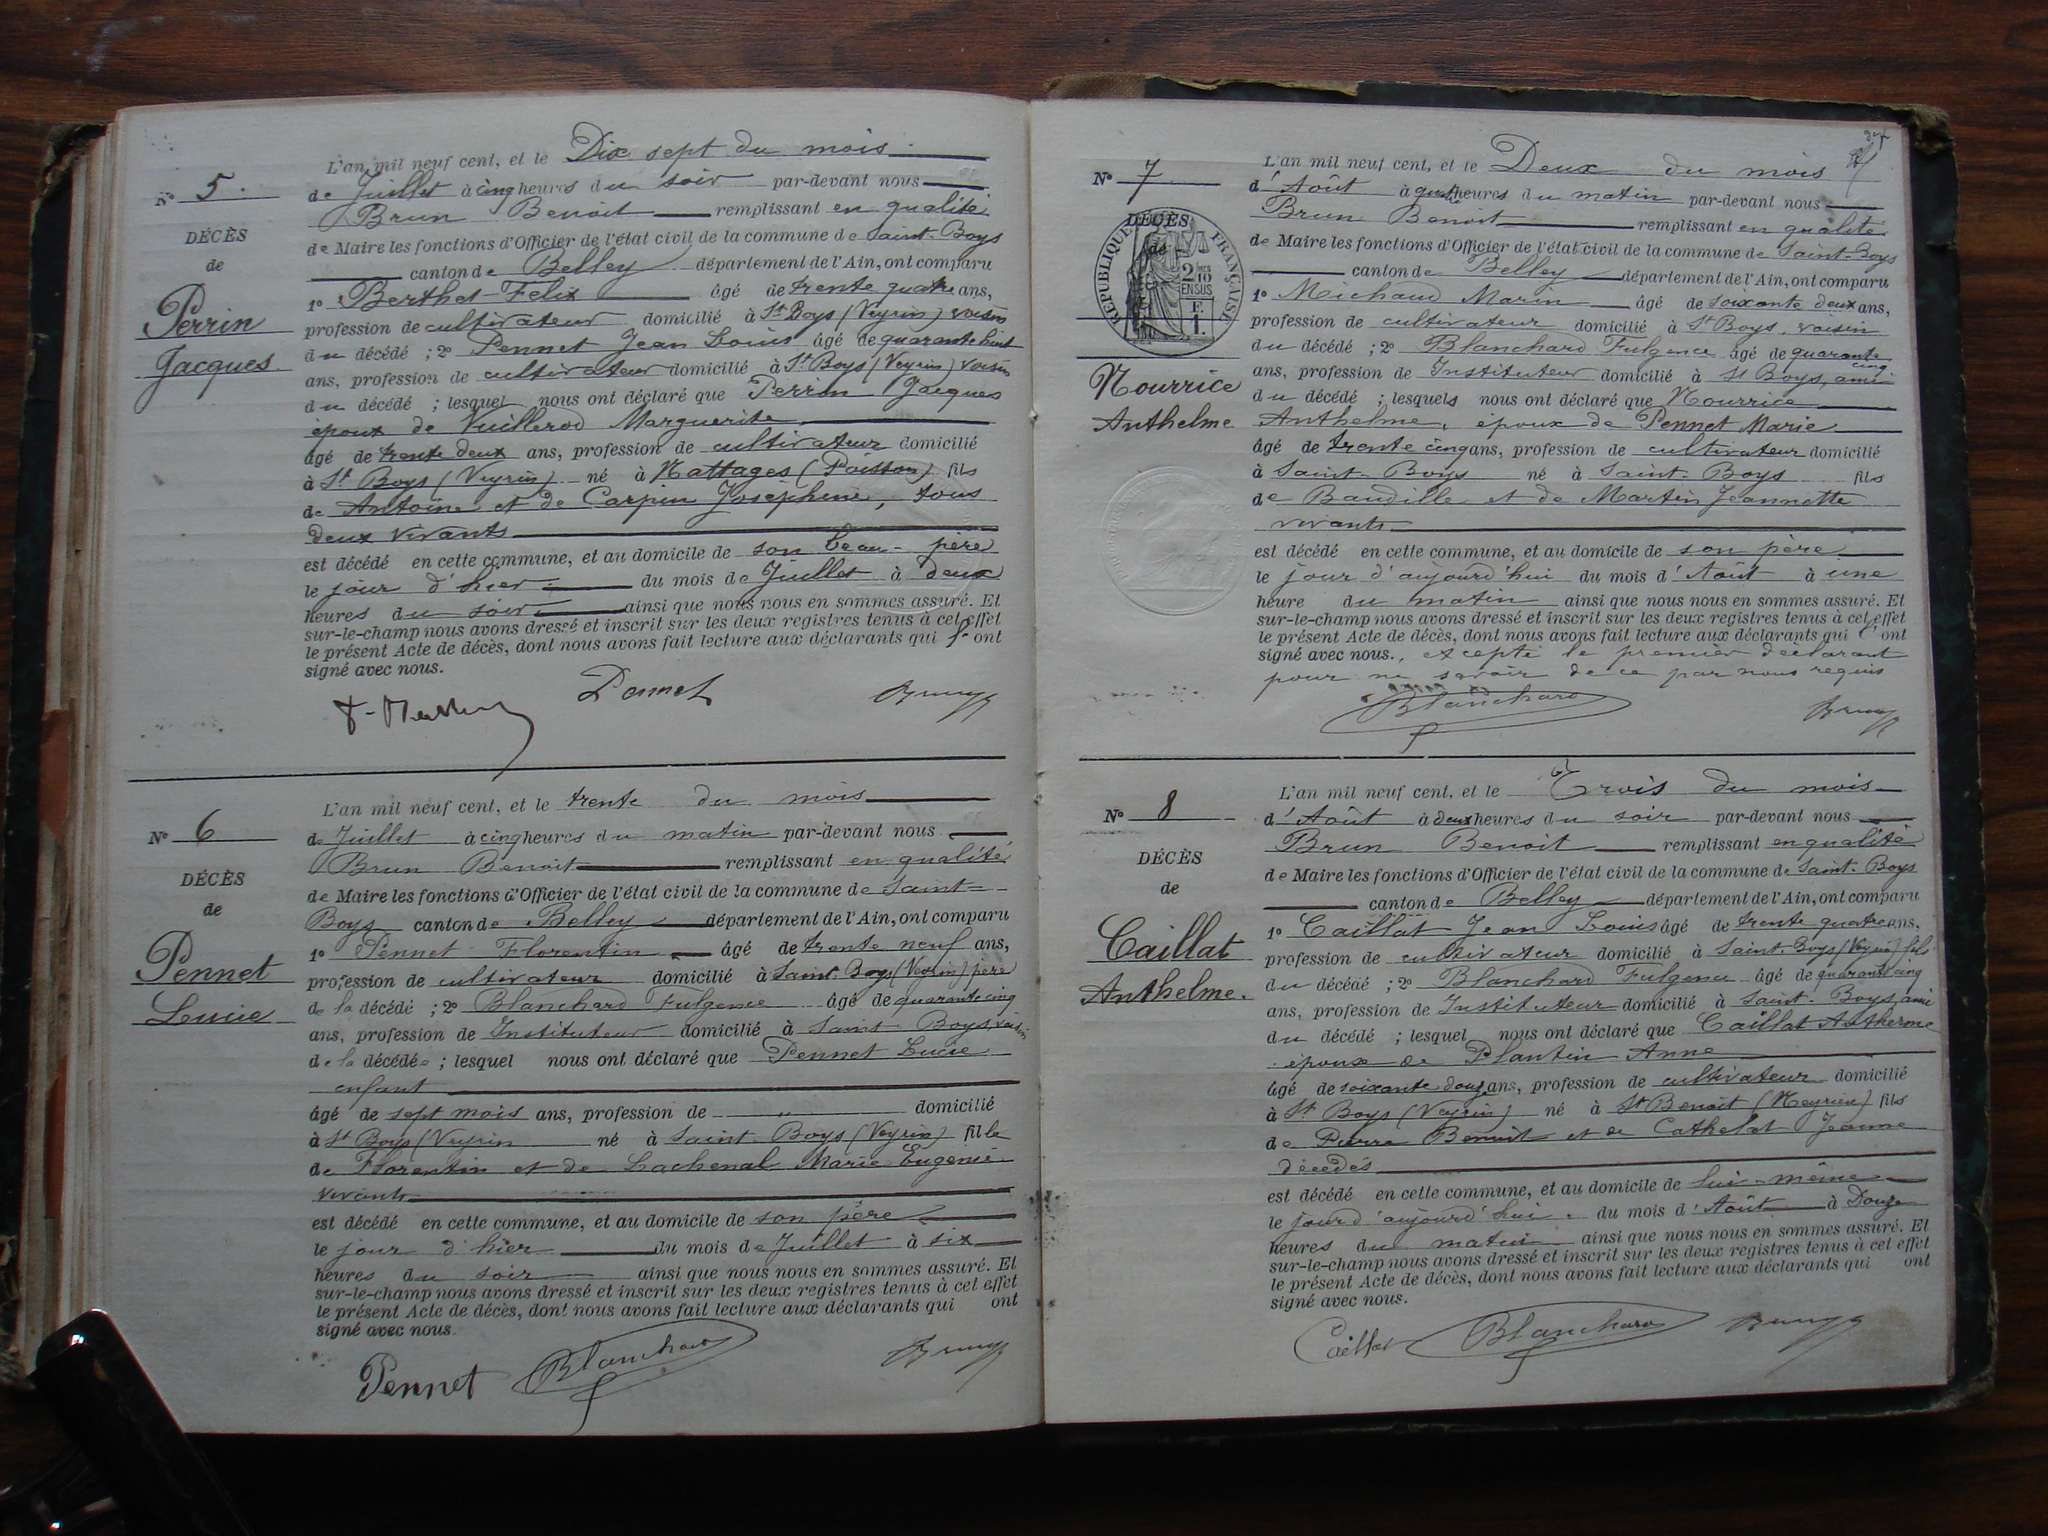 N° 5.
DÉCÈS
de
Perrin
Jacques
L'an mil neuf cent, et le Dix sept du mois
de Juillet à cinq heures du soir par-devant nous
Brun Benoit remplissant en qualité
de Maire les fonctions d'Officier de l'état civil de la commune de Saint-Boys
canton de Belley département de l'Ain, ont comparu
1° Berthet Felix âgé de trente quatre ans,
profession de cultivateur domicilié à St Boys (Veyrin) voisin
du décédé ; 2° Pennet Jean Louis âgé de quarante huit
ans, profession de cultivateur domicilié à St Boys (Veyrin) voisin
du décédé ; lesquel nous ont déclaré que Perrin Jacques
époux de Vuillerod Marguerite
âgé de trente deux ans, profession de cultivateur domicilié
à St Boys (Veyrin) né à Nattages (Poisson) fils
de Antoine et de Carpin Joséphine, tous
deux vivants
est décédé en cette commune, et au domicile de son beau-père
le jour d'hier du mois de Juillet à deux
heures du soir ainsi que nous nous en sommes assuré. Et
sur-le-champ nous avons dressé et inscrit sur les deux registres tenus à cet effet
le présent Acte de décès, dont nous avons fait lecture aux déclarants qui l'ont
signé avec nous.
Pennet Brun
N° 6
DÉCÈS
de
Pennet
Lucie
L'an mil neuf cent, et le trente du mois
de Juillet à cinq heures du matin par-devant nous
Brun Benoit remplissant en qualité
de Maire les fonctions d'Officier de l'état civil de la commune de Saint-
Boys canton de Belley département de l'Ain, ont comparu
1° Pennet Florentin âgé de trente neuf ans,
profession de cultivateur domicilié à Saint-Boys (Veyrin) père
de la décédé ; 2° Blanchard Fulgence âgé de quarante cinq
ans, profession de Instituteur domicilié à Saint Boys, voisin
de la décédée ; lesquel nous ont déclaré que Pennet Lucie
enfant
âgé de sept mois ans, profession de " domicilié
à St Boys (Veyrin né à Saint-Boys (Veyrin) fille
de Florentin et de Lachenal Marie Eugenie
vivants
est décédé en cette commune, et au domicile de son père
le jour d'hier du mois de Juillet à six
heures du soir ainsi que nous nous en sommes assuré. Et
sur-le-champ nous avons dressé et inscrit sur les deux registres tenus à cet effet
le présent Acte de décès, dont nous avons fait lecture aux déclarants qui ont
signé avec nous.
Pennet Blanchard Brun
N° 7
DÉCÈS
de
RÉPUBLIQUE FRANÇAISE
2/10 EN SUS
F.
1.
Nourrice
Anthelme
L'an mil neuf cent, et le Deux du mois
d'Août à quatre heures du matin par-devant nous
Brun Benoit remplissant en qualité
de Maire les fonctions d'Officier de l'état civil de la commune de Saint-Boys
canton de Belley département de l'Ain, ont comparu
1° Michaud Marin âgé de soixante deux ans,
profession de cultivateur domicilié à St Boys, voisin
du décédé ; 2° Blanchard Fulgence âgé de quarante cinq
ans, profession de Instituteur domicilié à St Boys, ami
du décédé ; lesquels nous ont déclaré que Nourrice
Anthelme, époux de Pennet Marie
âgé de trente cinq ans, profession de cultivateur domicilié
à Saint-Boys né à Saint-Boys fils
de Baudille et de Martin Jeannette
vivants
est décédé en cette commune, et au domicile de son père
le jour d'aujourd'hui du mois d'Août à une
heure du matin ainsi que nous nous en sommes assuré. Et
sur-le-champ nous avons dressé et inscrit sur les deux registres tenus à cet effet
le présent Acte de décès, dont nous avons fait lecture aux déclarants qui l'ont
signé avec nous., excepté le premier déclarant
pour ne savoir de ce par nous requis
Blanchard Brun
N° 8
DÉCÈS
de
Caillat
Anthelme.
L'an mil neuf cent, et le Trois du mois
d'Août à deux heures du soir par-devant nous
Brun Benoit remplissant en qualité
de Maire les fonctions d'Officier de l'état civil de la commune de Saint-Boys
canton de Belley département de l'Ain, ont comparu
1° Caillat Jean Louis âgé de trente quatre ans,
profession de cultivateur domicilié à Saint-Boys (Veyrin) fils
du décédé ; 2° Blanchard Fulgence âgé de quarante cinq
ans, profession de Instituteur domicilié à Saint-Boys, ami
du décédé ; lesquel nous ont déclaré que Caillat Anthelme
époux de Plantin Anne
âgé de soixante douze ans, profession de cultivateur domicilié
à St Boys (Veyrin) né à St Benoit (Meyrieu) fils
de Pierre Benoit et de Cathelat Jeanne
décédés
est décédé en cette commune, et au domicile de lui-même
le jour d'aujourd'hui du mois d'Août à Douze
heures du matin ainsi que nous nous en sommes assuré. Et
sur-le-champ nous avons dressé et inscrit sur les deux registres tenus à cet effet
le présent Acte de décès, dont nous avons fait lecture aux déclarants qui ont
signé avec nous.
Caillat Blanchard Brun